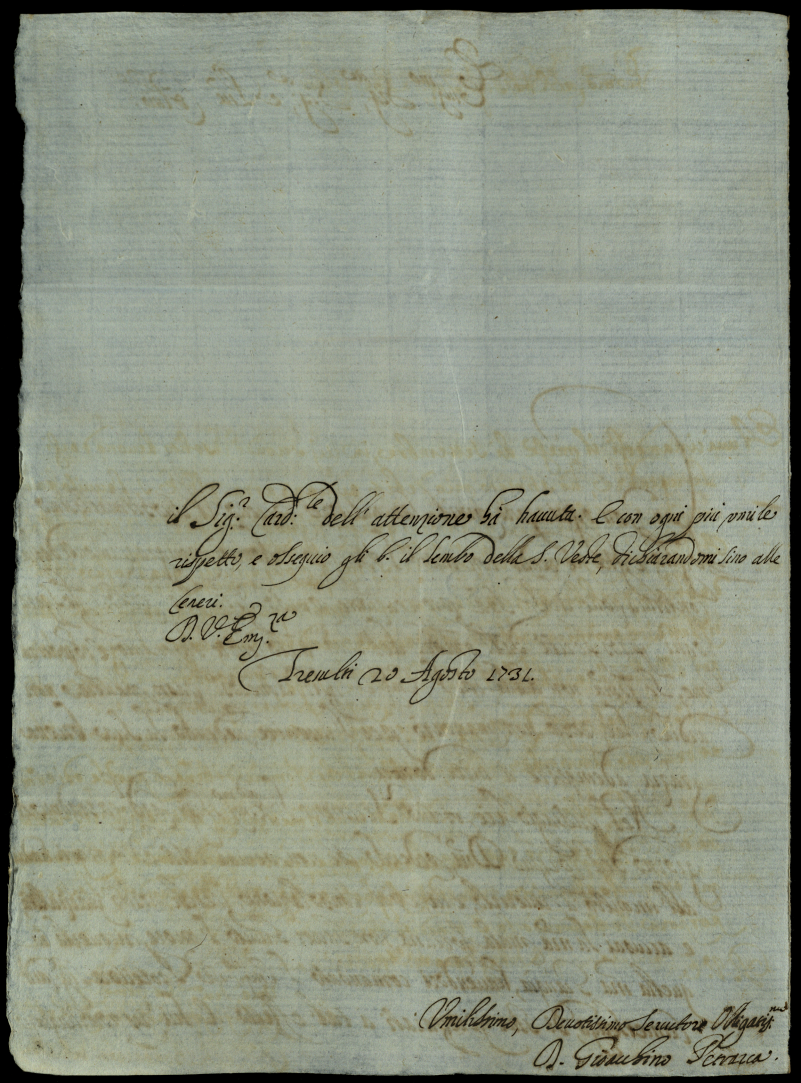 il Sig.r Card.le dell' attenzione hà havuta. E con ogni più umile
rispetto, e ossequio gli b. il lembo della S. Veste, dichiarandomi sino alle
Ceneri.
D. V. Em.za
20 Agosto 1731.
Umilissimo, Devotissimo Servitore Obligatis.mo
D. Gioacchino Petrarca.